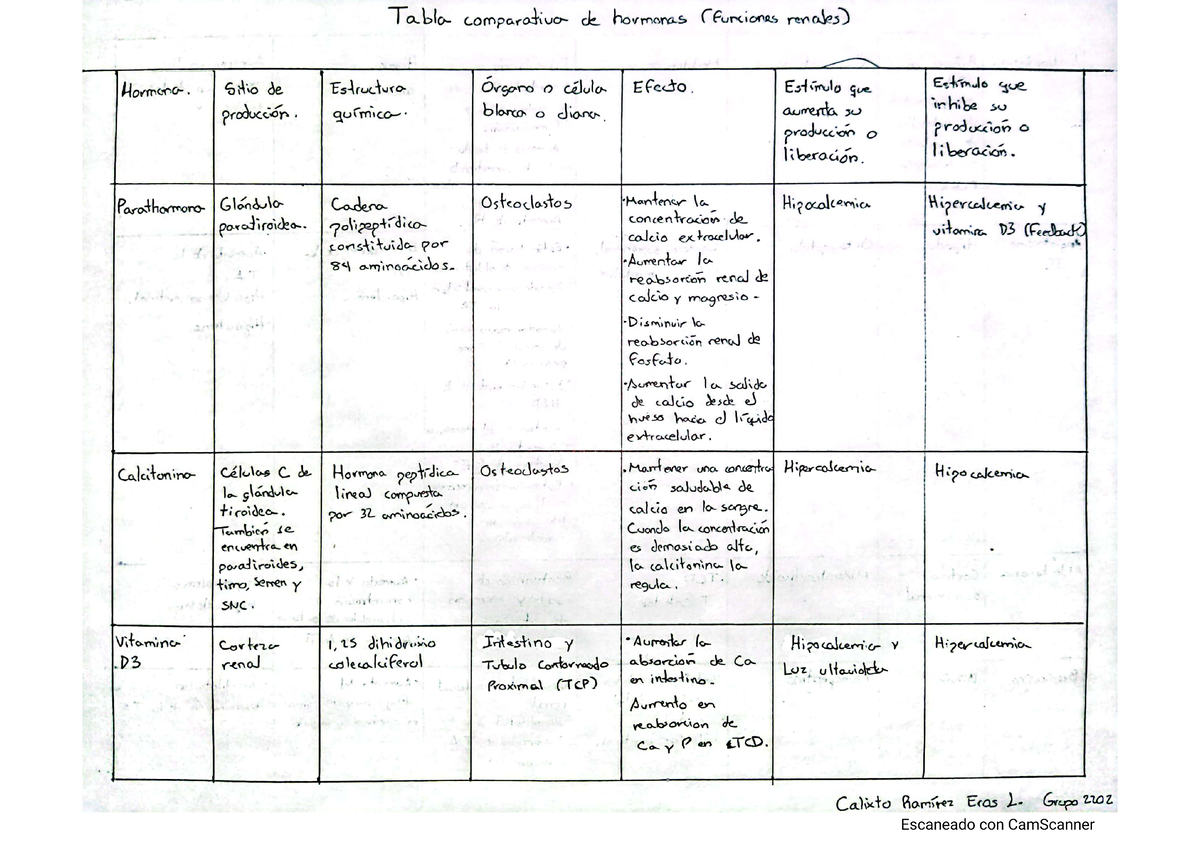 Tabla comparativa de hormonas (Funciones renales)
Hormona.
Sitio de
producción.
Estructura
química.
Órgano o célula
blanco o diana.
Efecto.
Estímulo que
aumenta su
producción o
liberación.
Estímulo que
inhibe su
producción o
liberación.
Parathormona
Glándula
paratiroidea.
Cadena
polipeptídica
constituida por
84 aminoácidos.
Osteoclastos
·Mantener la
concentración de
calcio extracelular.
·Aumentar la
reabsorción renal de
calcio y magnesio.
·Disminuir la
reabsorción renal de
fosfato.
·Aumentar la salida
de calcio desde el
hueso hacia el líquido
extracelular.
Hipocalcemia
Hipercalcemia y
vitamina D3 (Feedback)
Calcitonina
Células C de
la glándula
tiroidea.
También se
encuentra en
paratiroides,
timo, y
SNC.
Hormona peptídica
lineal compuesta
por 32 aminoácidos.
Osteoclastos
·Mantener una concentra
ción saludable de
calcio en la sangre.
Cuando la concentración
es demasiado alta,
la calcitonina la
regula.
Hipercalcemia
Hipocalcemia
Vitamina
D3
Corteza
renal
1,25 dihidroxio
colecalciferol
Intestino y
Tubulo Contorneado
Proximal (TCP)
·Aumentar la
absorción de Ca
en intestino.
Aumento en
reabsorcion de
Ca y P en TCD.
Hipocalcemia y
Luz ultavioleta
Hipercalcemia
Calixto Ramírez Eras L. Grupo 2202
Escaneado con CamScanner